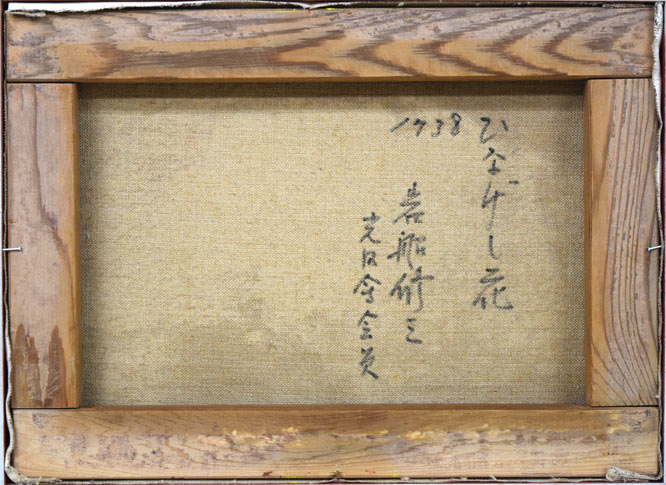 ひなげし花
1938
岩船修三
会会員